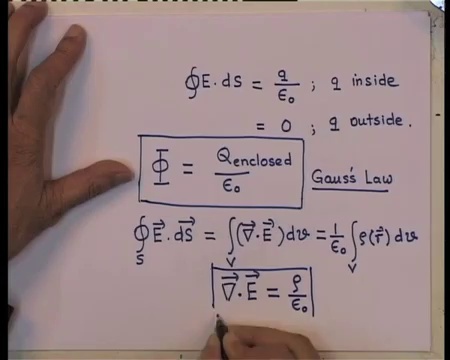 ∮E.ds = q/ε₀ ; q inside
= 0 ; q outside.
Φ = Qenclosed/ε₀
Gauss's Law
∮_S E⃗.dS⃗ = ∫_V (∇⃗.E⃗)dv = 1/ε₀ ∫_V ρ(r⃗) dv
∇⃗.E⃗ = ρ/ε₀